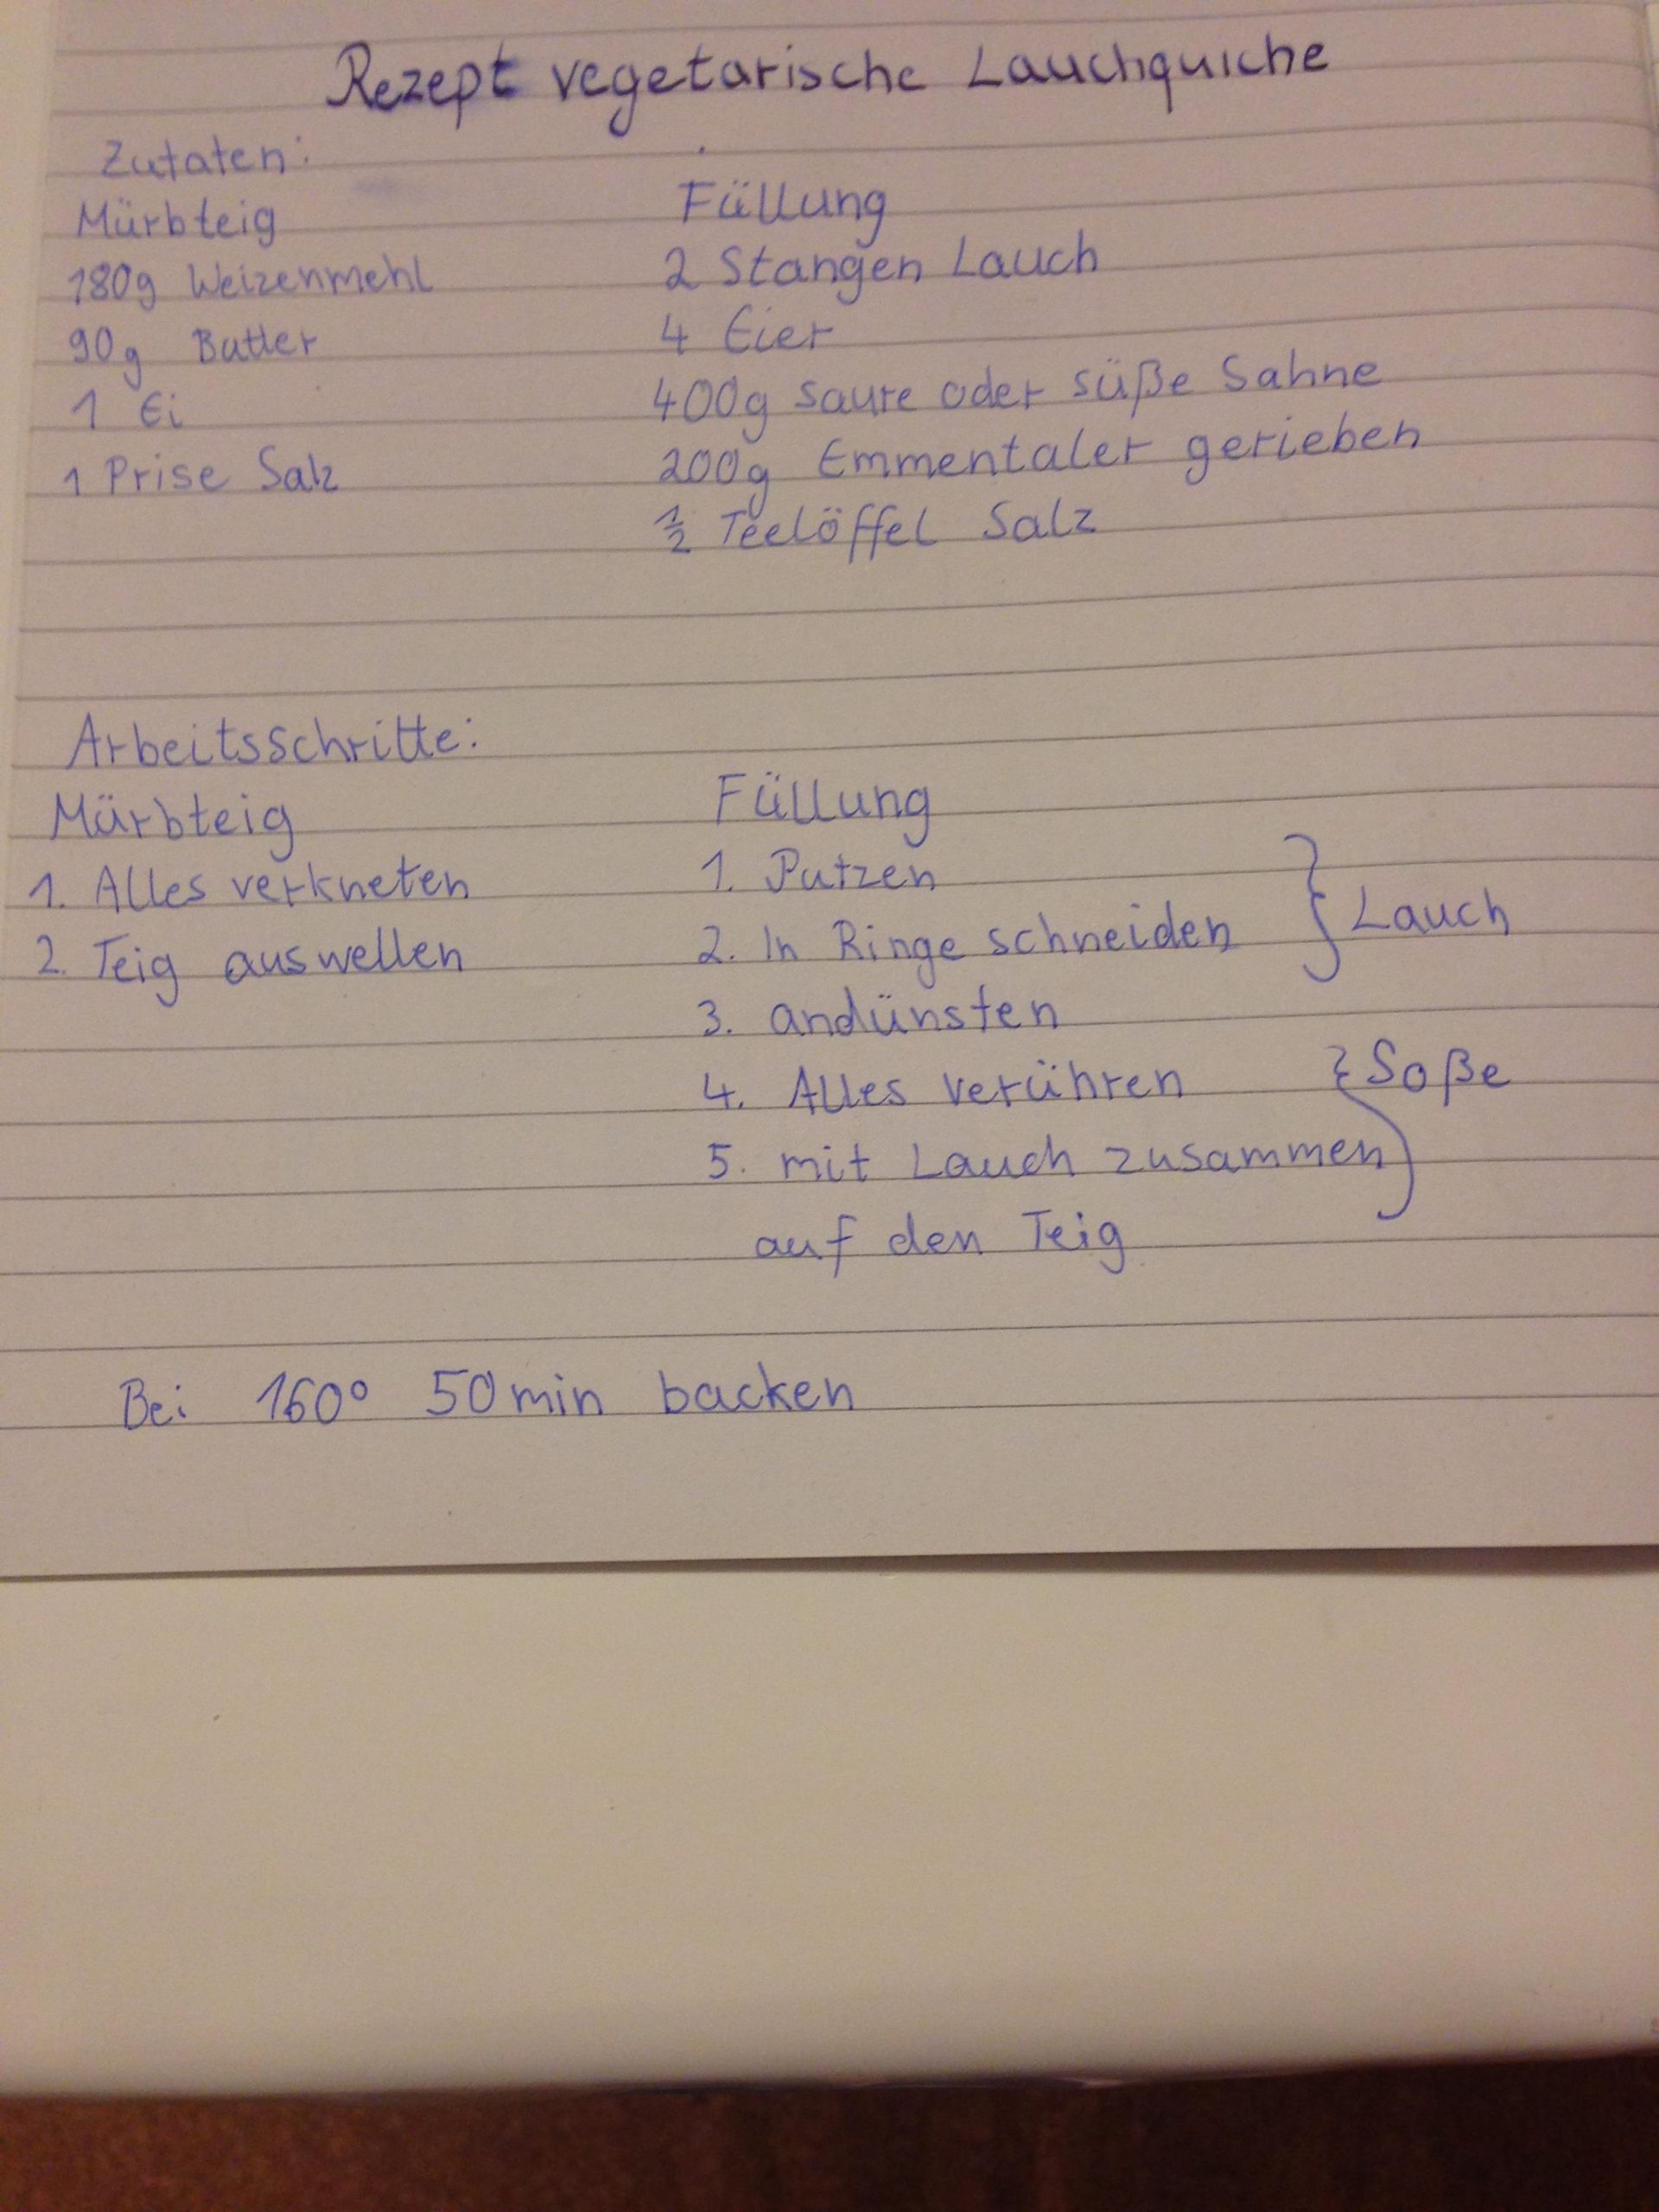 Rezept vegetarische Lauchquiche
Zutaten:
Mürbteig
180g Weizenmehl
90g Butter
1 Ei
1 Prise Salz
Füllung
2 Stangen Lauch
4 Eier
400g saure oder süße Sahne
200g Emmentaler gerieben
½ Teelöffel Salz
Arbeitsschritte:
Mürbteig
1. Alles verkneten
2. Teig auswellen
Füllung
1. Putzen
2. In Ringe schneiden } Lauch
3. andünsten
4. Alles verühren } Soße
5. mit Lauch zusammen
auf den Teig
Bei 160° 50min backen